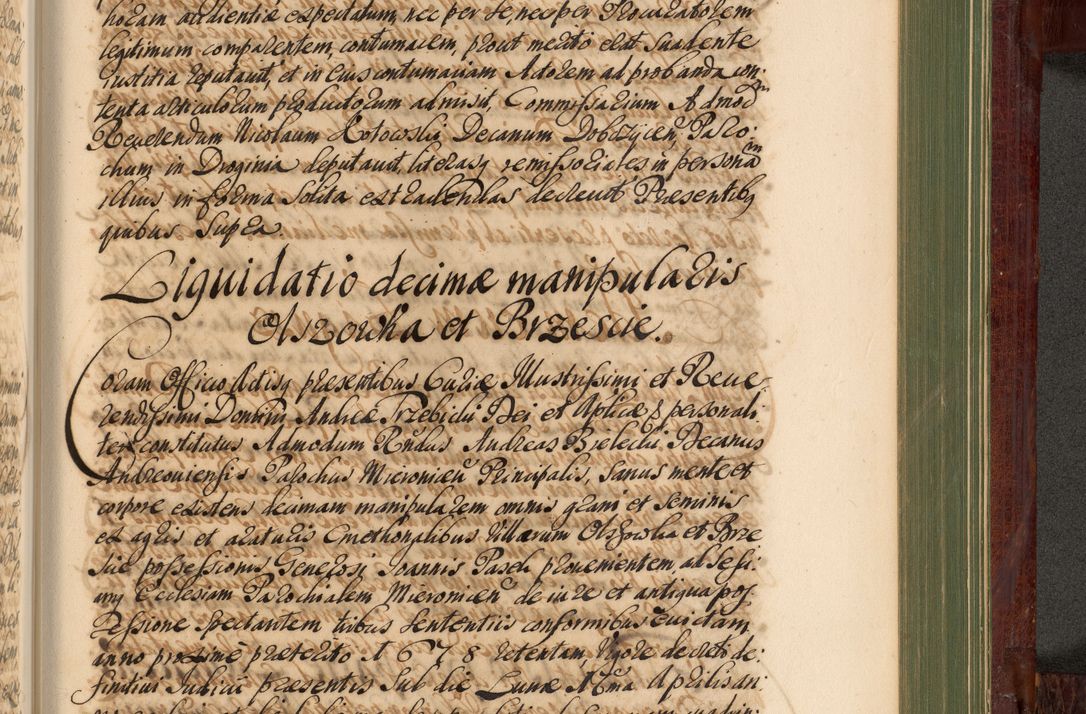 horam audientiæ expectatum, nec per se, nec per Procuratorem
legitimum comparentem, contumacem, prout merito erat suadente
Iustitia reputavit, et in eius contumatiam Actorem ad probanda con:
tenta articulorum productorum admisit, Commissarium Admodm
Reuerendum Nicolaum Kotowski Decanum Dobczycen, Paro:
chum in Droginia deputauit, literasq remissoriales in personam
illius in forma solita extradendas decreuit Præsentibq
quibus supra.
Liquidatio decimæ manipularis
Olszowka et Brzescie.
Coram Officio Actisq præsentibus Curiæ Illustrissimi et Reue:
rendissimi Domini Andreæ Trzebicki Dei et Aplicæ S personali:
ter constitutus Admodum Rndus Andreas Bielecki Decanus
Andreouiensis Parochus Mieronicen Principalis, sanus mente et
corpore existens decimam manipularem omnis grani et seminis
ex agris et araturis Cmethonalibus Villarum Olszowka et Brze
scie possessionis Generosi Joannis Pasek prouenientem ad Eccle
Ecclesiam Parochialem Mieronicen de iure et antiqua pos
sessione spectantem tribus sententiis conformibus euictam,
anno proxime præterito 1678 retentam, Vigore decreti de:
finitiui Judicii præsentis sub die Lunæ Aprilis an: